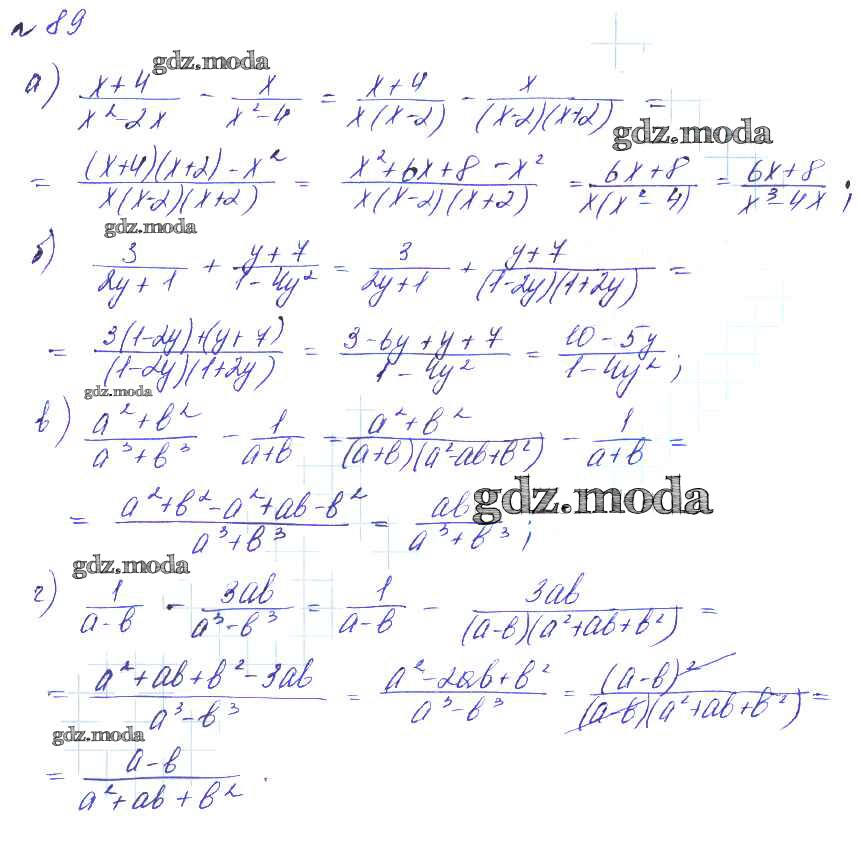 № 89
gdz.moda
а) (x+4)/(x²-2x) - x/(x²-4) = (x+4)/(x(x-2)) - x/((x-2)(x+2)) =
gdz.moda
= ((x+4)(x+2)-x²)/(x(x-2)(x+2)) = (x²+6x+8-x²)/(x(x-2)(x+2)) = (6x+8)/(x(x²-4)) = (6x+8)/(x³-4x);
gdz.moda
б) 3/(2y+1) + (y+7)/(1-4y²) = 3/(2y+1) + (y+7)/((1-2y)(1+2y)) =
= (3(1-2y)+(y+7))/((1-2y)(1+2y)) = (3-6y+y+7)/(1-4y²) = (10-5y)/(1-4y²);
gdz.moda
в) (a²+b²)/(a³+b³) - 1/(a+b) = (a²+b²)/((a+b)(a²-ab+b²)) - 1/(a+b) =
= (a²+b²-a²+ab-b²)/(a³+b³) = ab/(a³+b³);
gdz.moda
gdz.moda
г) 1/(a-b) - 3ab/(a³-b³) = 1/(a-b) - 3ab/((a-b)(a²+ab+b²)) =
= (a²+ab+b²-3ab)/(a³-b³) = (a²-2ab+b²)/(a³-b³) = (a-b)²/((a-b)(a²+ab+b²)) =
gdz.moda
= (a-b)/(a²+ab+b²).